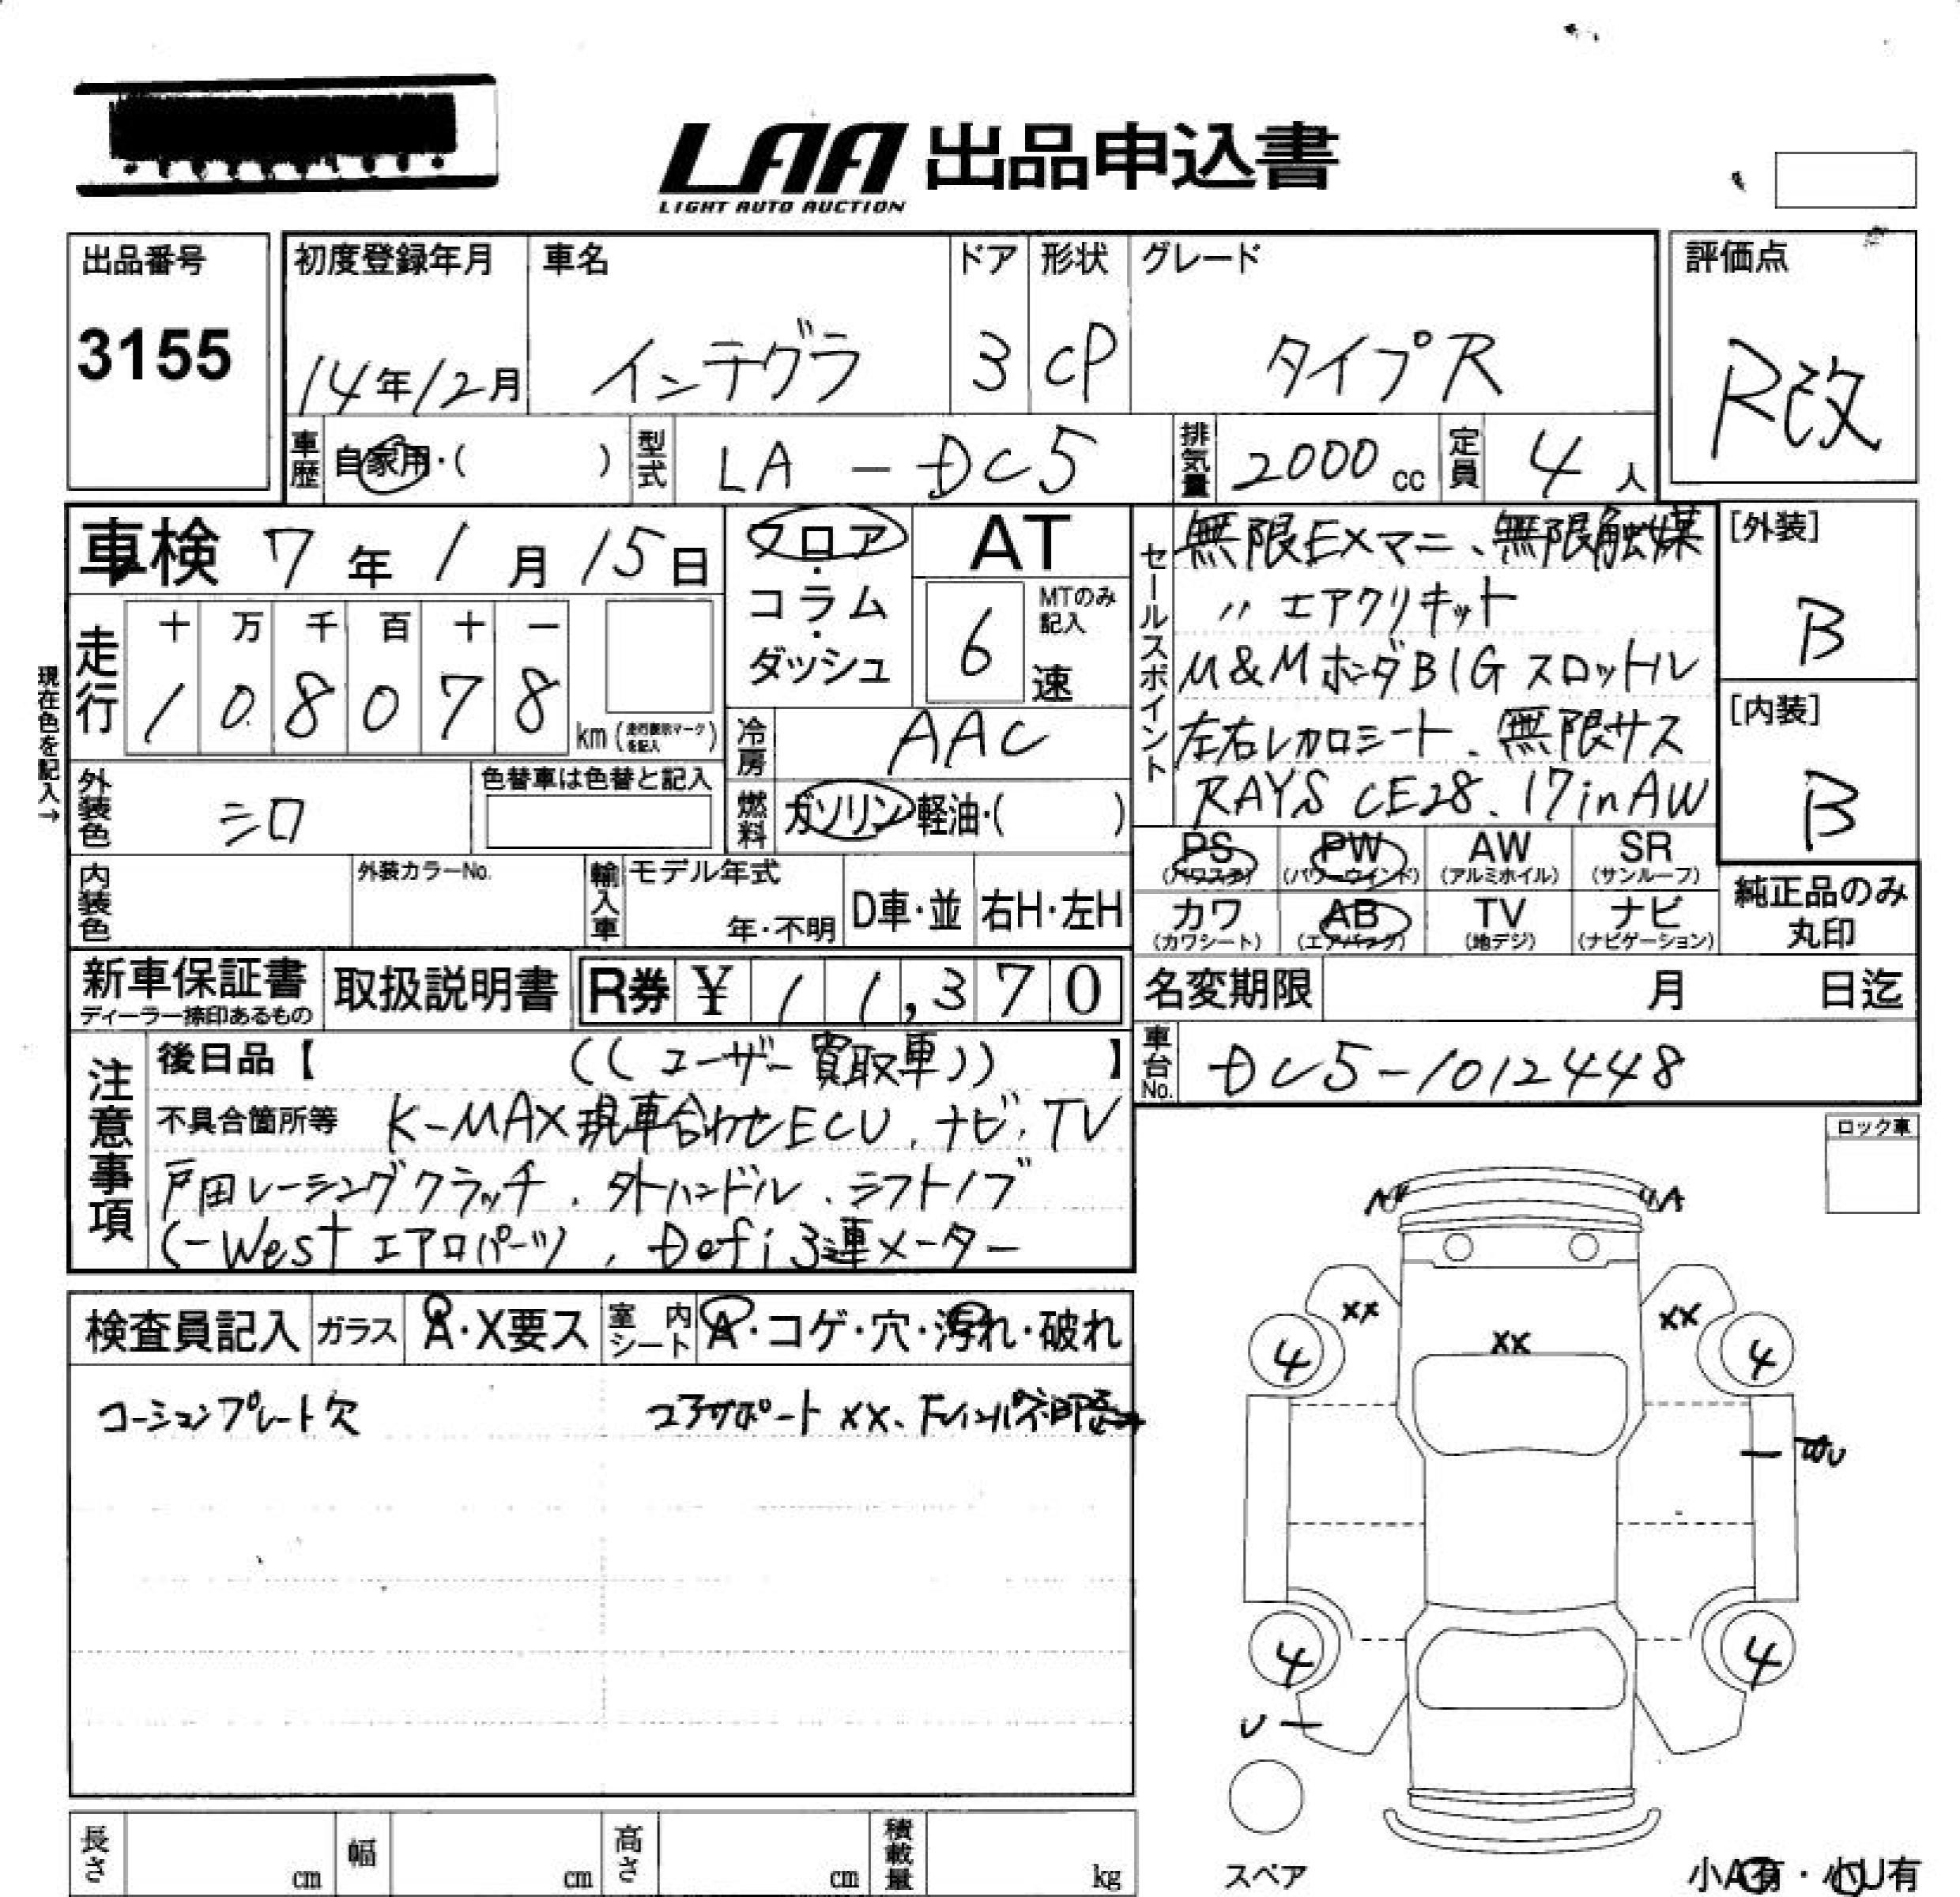 LAA 出品申込書
LIGHT AUTO AUCTION
出品番号
3155
初度登録年月
14年12月
車名
インテグラ
ドア
3
形状
CP
グレード
タイプR
評価点
R改
車歴
自家用・( )
型式
LA-DC5
排気量
2000 cc
定員
4 人
車検 7年1月15日
走行
十 万 千 百 十 一
1 0 8 0 7 8
km (走行表示マークを記入)
現在色を記入→
フロア・コラム・ダッシュ
AT
MTのみ記入
6 速
冷房
AAC
燃料
ガソリン・軽油・( )
外装色
シロ
色替車は色替と記入
内装色
外装カラーNo.
輸入車
モデル年式
年・不明
D車・並
右H・左H
セールスポイント
無限EXマニ、無限触媒
〃 エアクリキット
M&MホンダBIGスロットル
左右レカロシート、無限サス
RAYS CE28、17inAW
[外装]
B
[内装]
B
PS (パワステ)
PW (パワーウインド)
AW (アルミホイル)
SR (サンルーフ)
カワ (カワシート)
AB (エアバック)
TV (地デジ)
ナビ (ナビゲーション)
純正品のみ丸印
新車保証書
ディーラー捺印あるもの
取扱説明書
R券 ¥ 11,370
名変期限 月 日迄
車台No.
DC5-1012448
注意事項
後日品【 ((ユーザー買取車)) 】
不具合箇所等 K-MAX現車合わせECU、ナビ、TV
戸田レーシングクラッチ、外ハンドル、シフトノブ
C-Westエアロパーツ、Defi3連メーター
ロック車
検査員記入
ガラス
A・X要ス
室内シート
A・コゲ・穴・汚れ・破れ
コーションプレート欠
コアサポートXX、
A
A
XX
XX
XX
4
4
4
4
U
スペア
長さ cm
幅 cm
高さ cm
積載量 kg
小A有・小U有